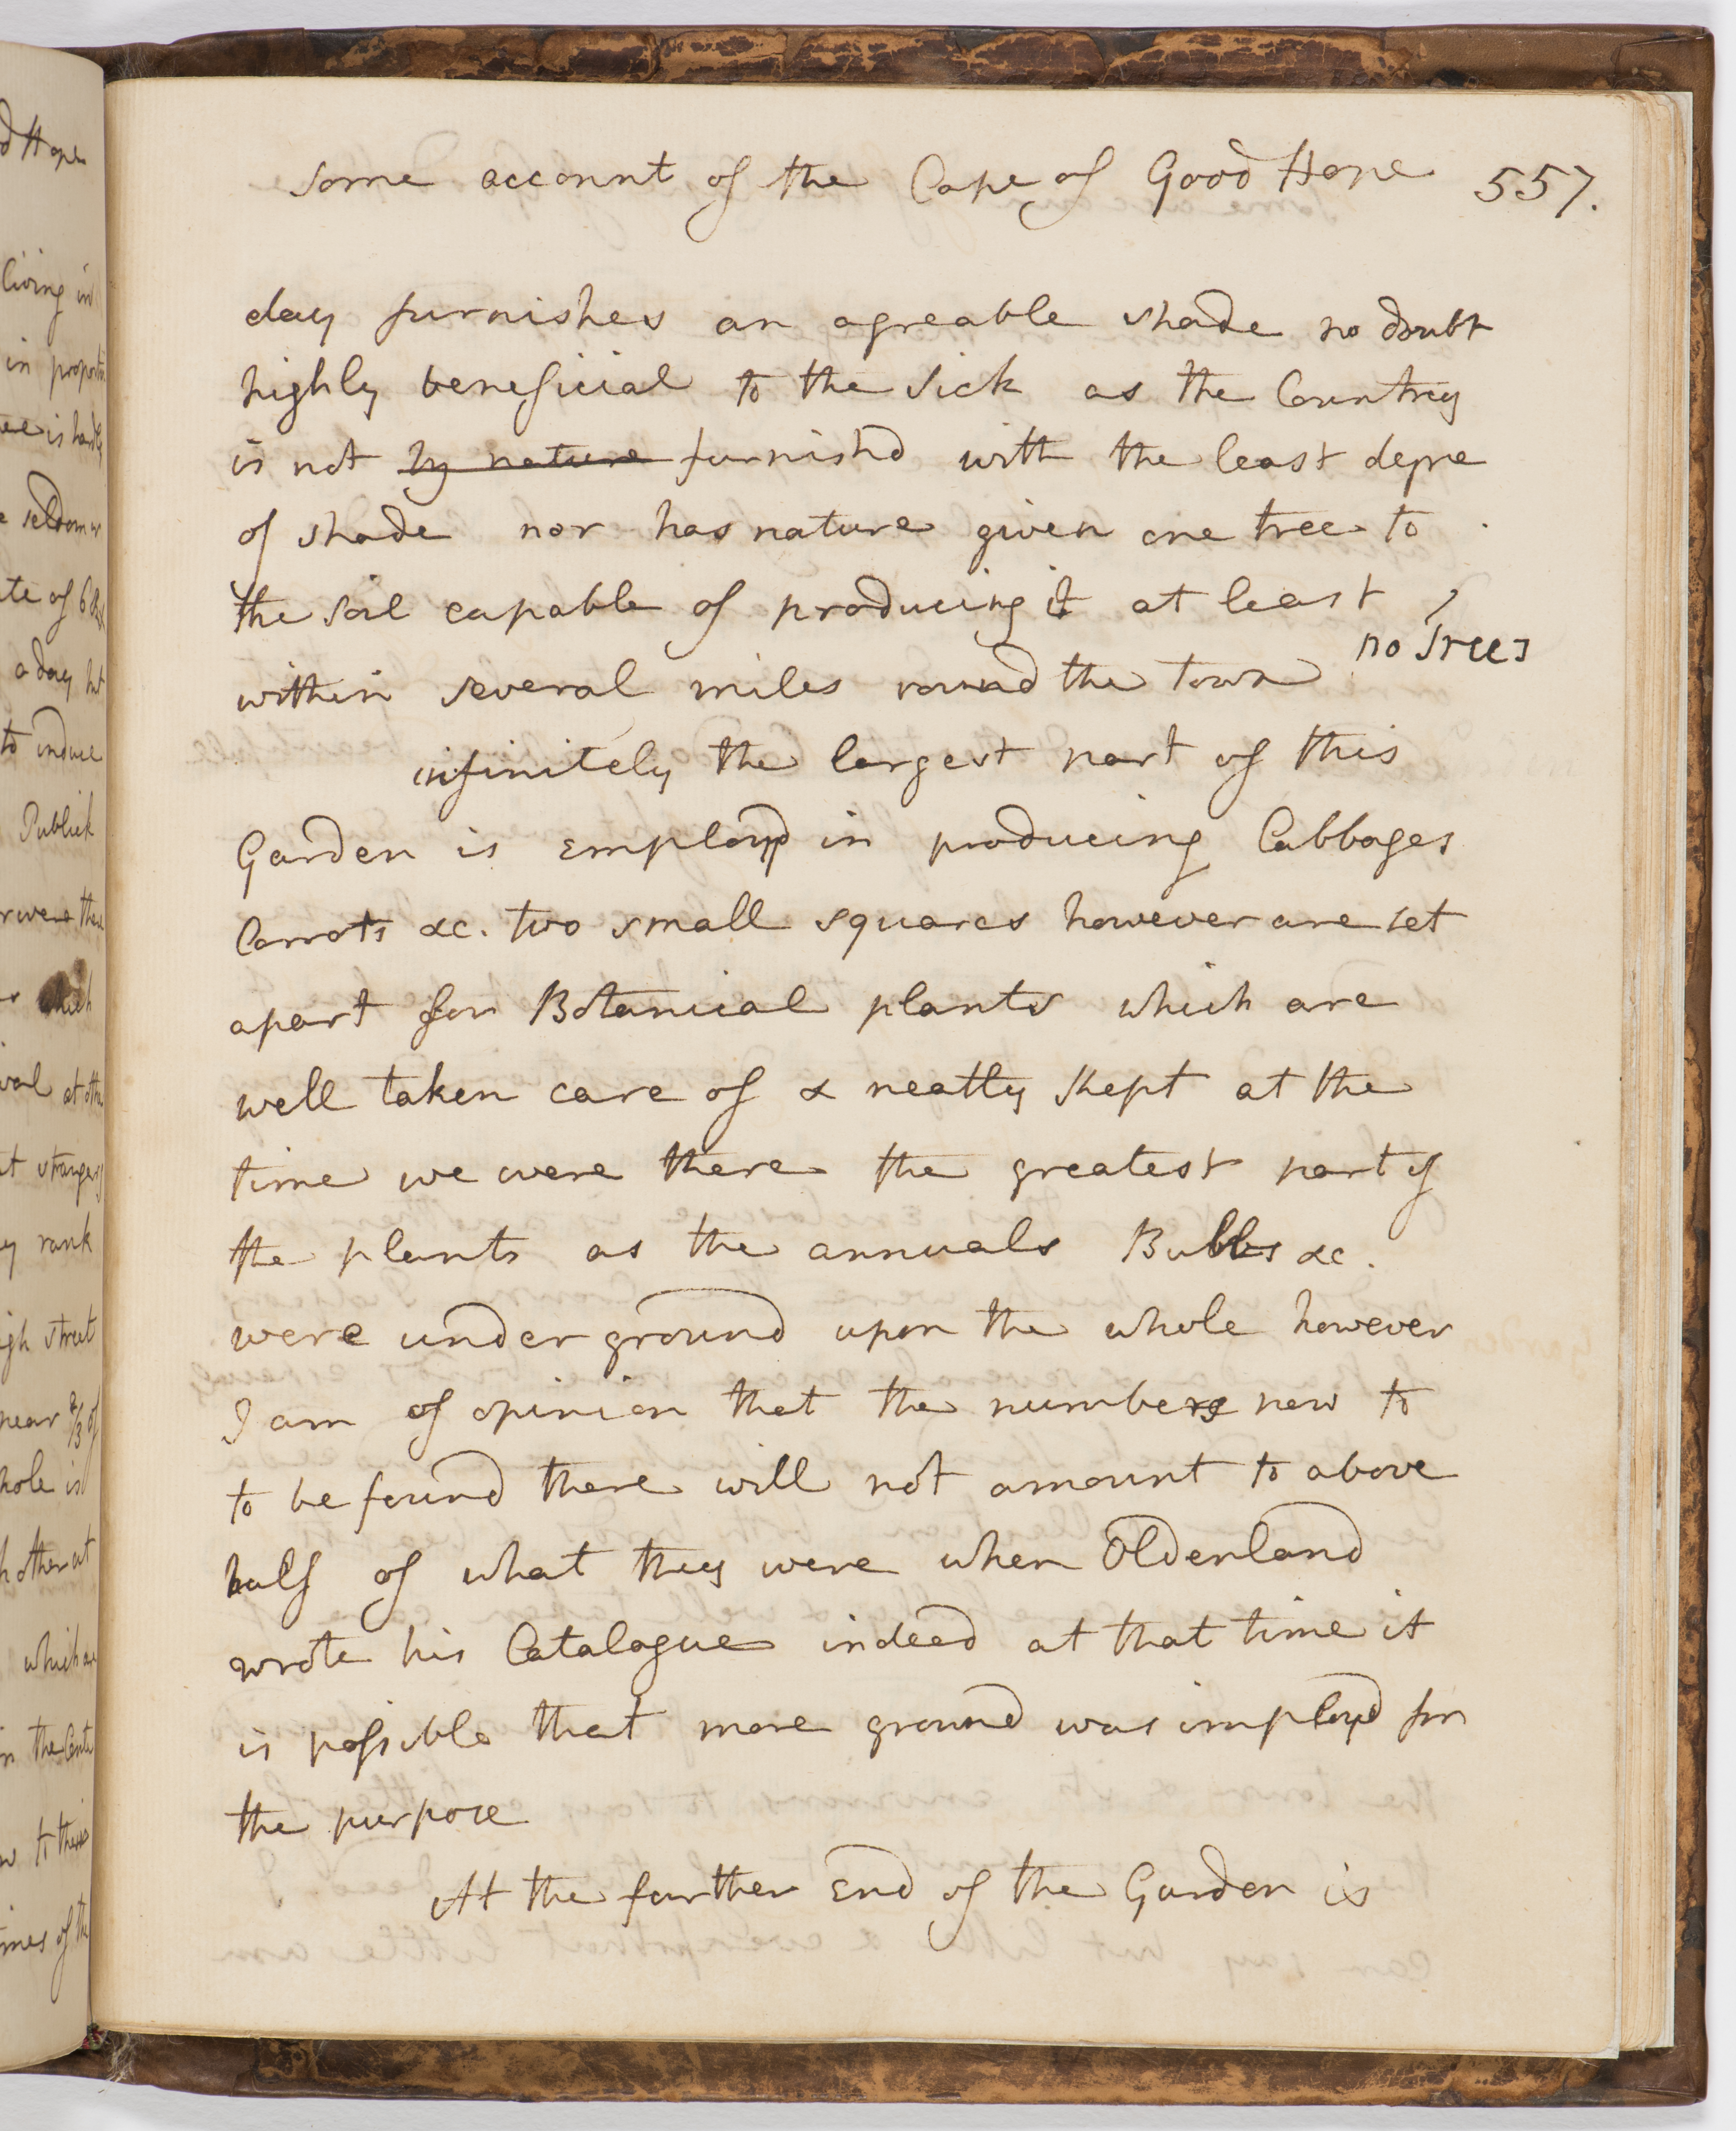 some account of the Cape of Good Hope 557.
day furnishes an agreable shade no doubt
highly beneficial to the sick as the Countrey
is not by nature furnishd with the least degre
of shade nor has nature given one tree to
the soil capable of producing it at least
no Trees
within several miles round the town
infinitely the largest part of this
Garden is employd in producing Cabbages
Carrots &c. two small squares however are set
apart for Botanical plants which are
well taken care of & neatly kept at the
time we were there the greatest part of
the plants as the annuals Bulbs &c.
were under ground upon the whole however
I am of opinion that the numbers now to
to be found there will not amount to above
half of what they were when Oldenland
wrote his Catalogue indeed at that time it
is possible that more ground was imployd for
the purpose
At the farther End of the Garden is
d Hope
living in
in proporti
ee is hardly
e seldom
te of 6
a day
to induce
Publick
r were the
which
val at oth
t strangers
y rank
igh street
near 2/3 of
hole is
h other at
which are
in the Cente
to these
mes of the